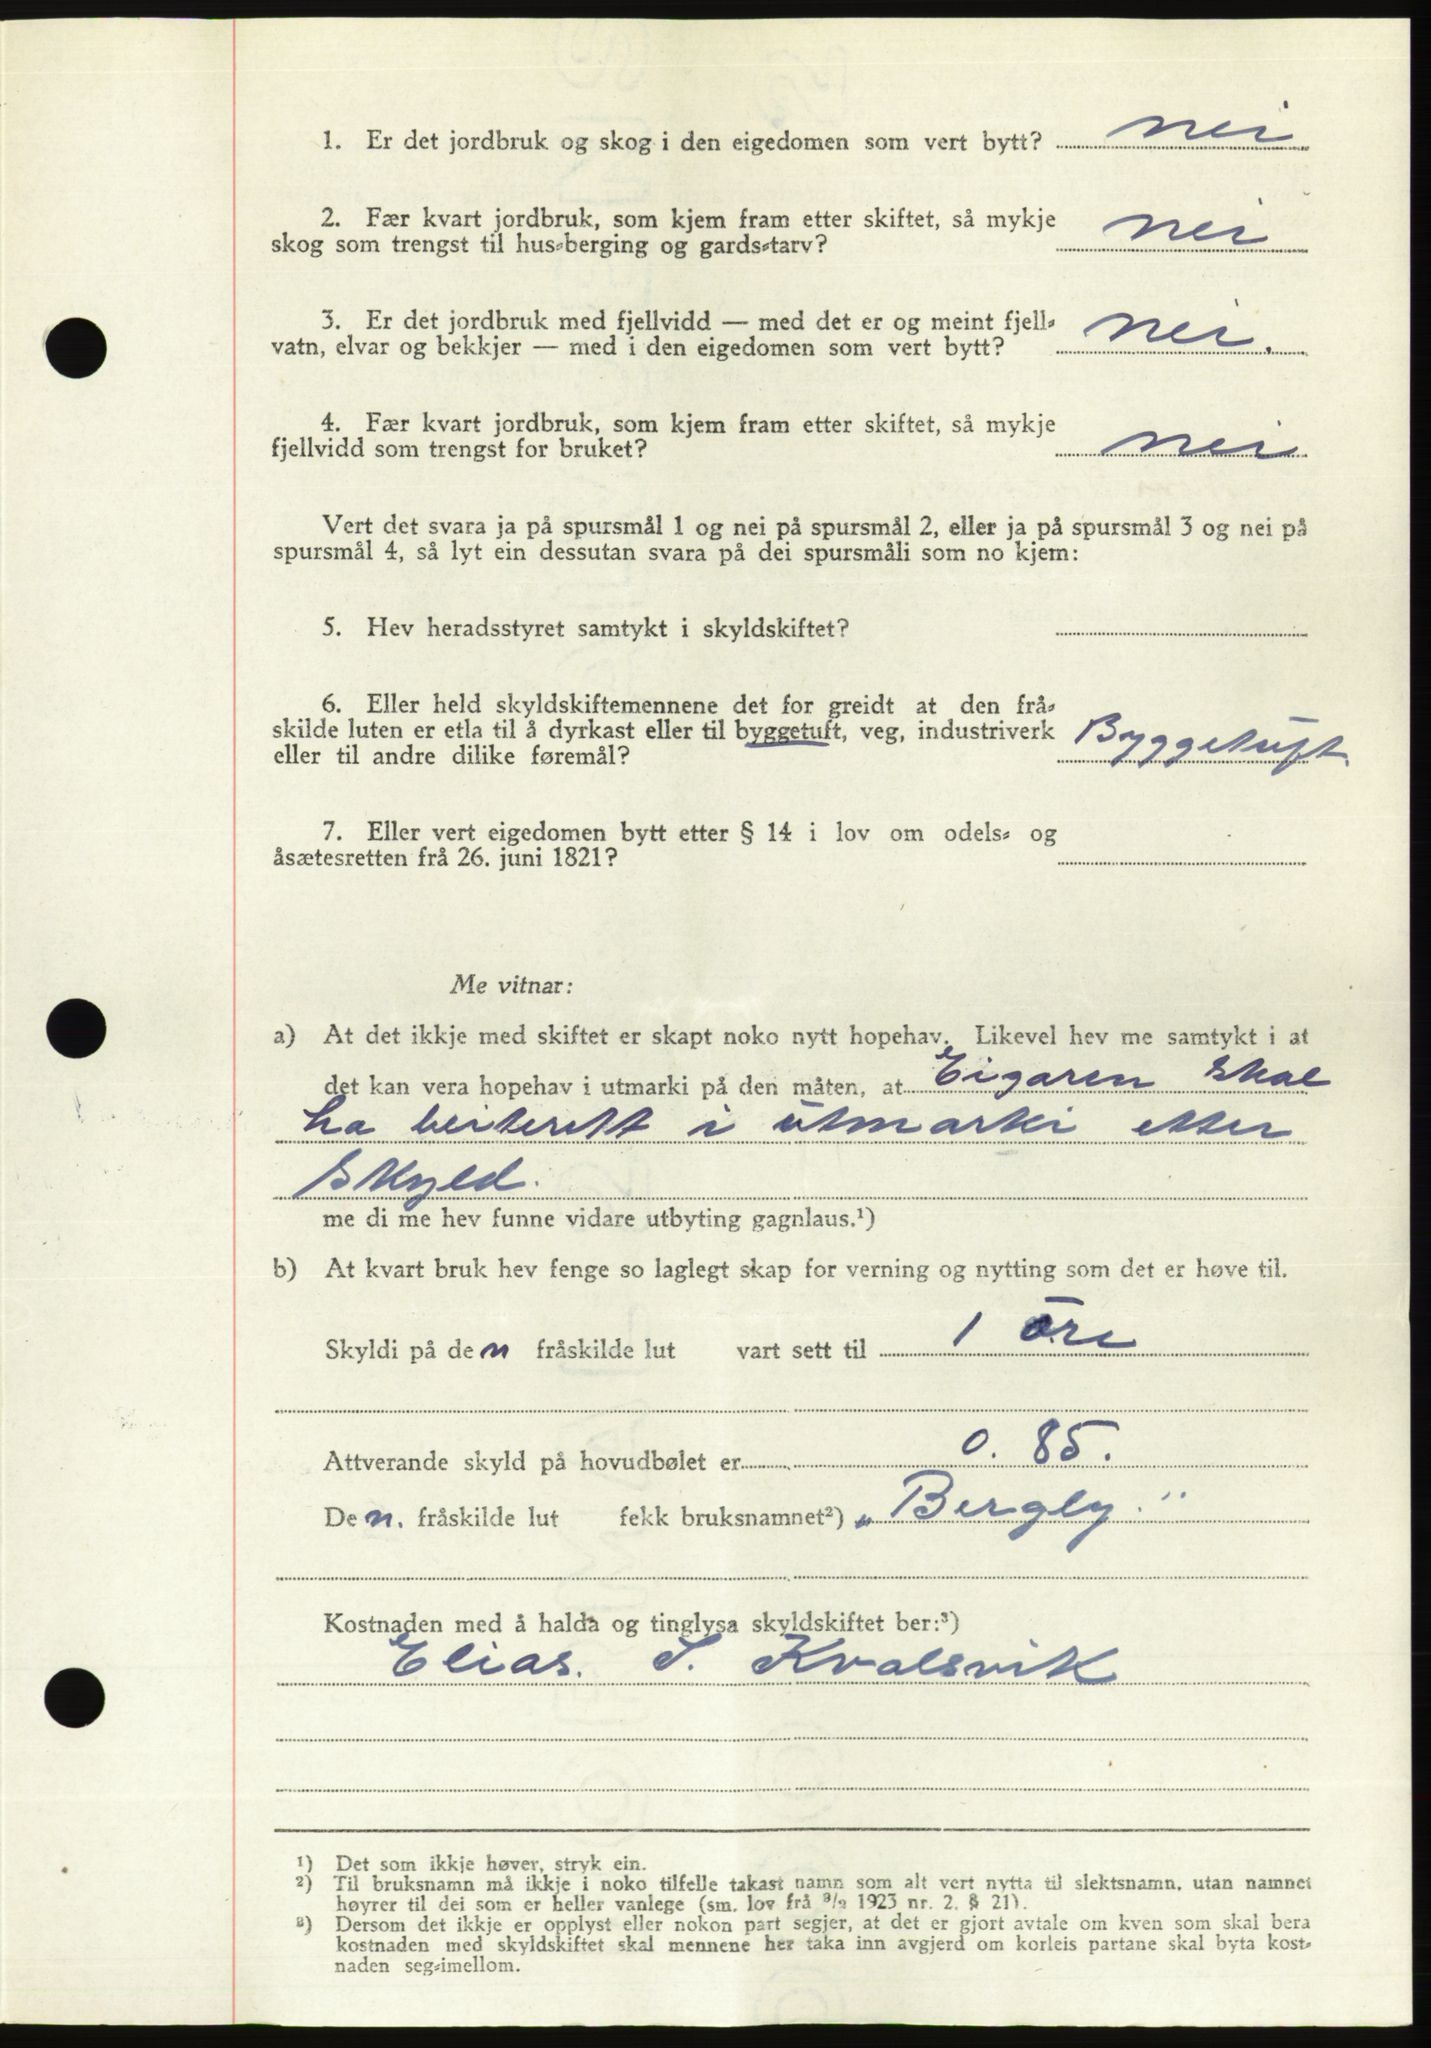 1. Er det jordbruk og skog i den eigedomen som vert bytt? nei
2. Fær kvart jordbruk, som kjem fram etter skiftet, så mykje
skog som trengst til hus-berging og gards-tarv? nei
3. Er det jordbruk med fjellvidd — med det er og meint fjell-
vatn, elvar og bekkjer — med i den eigedomen som vert bytt? nei.
4. Fær kvart jordbruk, som kjem fram etter skiftet, så mykje
fjellvidd som trengst for bruket? nei
Vert det svara ja på spursmål 1 og nei på spursmål 2, eller ja på spursmål 3 og nei på
spursmål 4, så lyt ein dessutan svara på dei spursmåli som no kjem:
5. Hev heradsstyret samtykt i skyldskiftet?
6. Eller held skyldskiftemennene det for greidt at den frå-
skilde luten er etla til å dyrkast eller til byggetuft, veg, industriverk
eller til andre dilike føremål? Byggetuft.
7. Eller vert eigedomen bytt etter § 14 i lov om odels- og
åsætesretten frå 26. juni 1821?
Me vitnar:
a) At det ikkje med skiftet er skapt noko nytt hopehav. Likevel hev me samtykt i at
det kan vera hopehav i utmarki på den måten, at Eigaren skal
ha beiterett i utmarki etter
skyld.
me di me hev funne vidare utbyting gagnlaus.¹)
b) At kvart bruk hev fenge so laglegt skap for verning og nytting som det er høve til.
Skyldi på den fråskilde lut vart sett til 1 øre
Attverande skyld på hovudbølet er 0.85.
Den. fråskilde lut fekk bruksnamnet²) „Bergly."
Kostnaden med å halda og tinglysa skyldskiftet ber:³)
Elias. S. Kvalsvik
¹) Det som ikkje høver, stryk ein.
²) Til bruksnamn må ikkje i noko tilfelle takast namn som alt vert nytta til slektsnamn, utan namnet
høyrer til dei som er heller vanlege (sm. lov frå 9/2 1923 nr. 2. § 21).
³) Dersom det ikkje er opplyst eller nokon part segjer, at det er gjort avtale om kven som skal bera
kostnaden med skyldskiftet skal mennene her taka inn avgjerd om korleis partane skal byta kost-
naden seg-imellom.